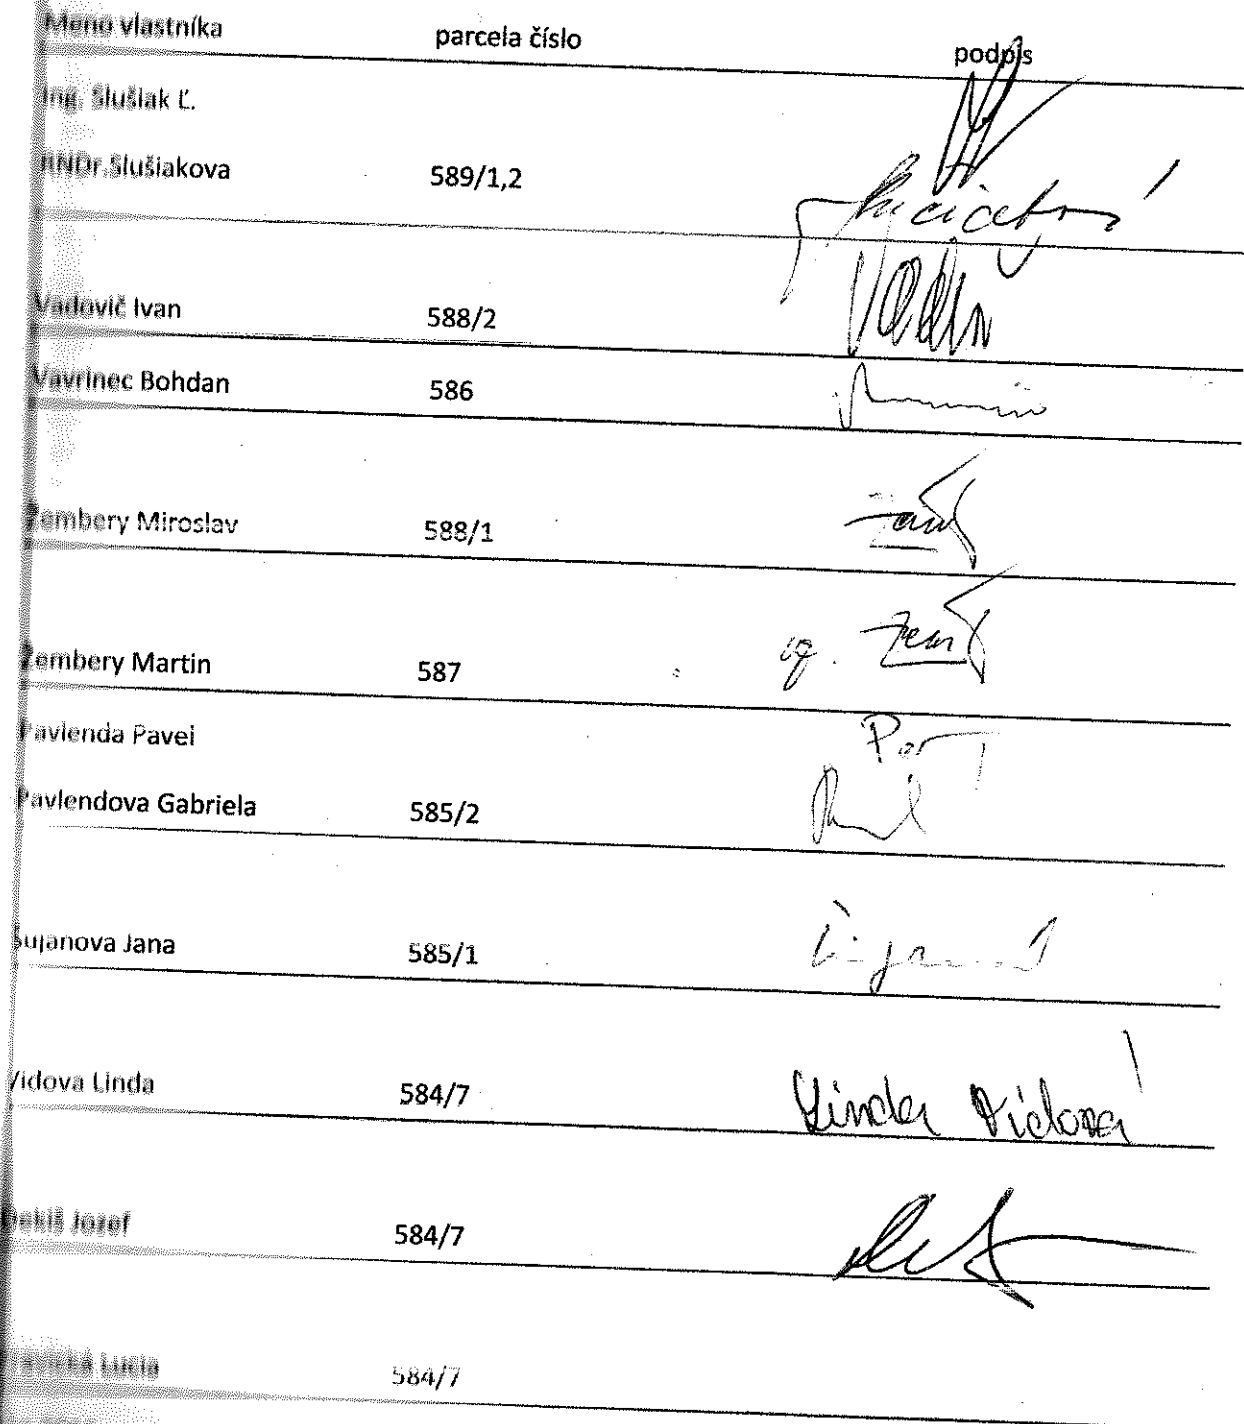 Meno vlastníka parcela číslo podpis
Ing. Slušiak Ľ.
RNDr.Slušiakova 589/1,2
Vadovič Ivan 588/2
Vavrinec Bohdan 586
Žembery Miroslav 588/1
Žembery Martin 587
Pavlenda Pavel
Pavlendova Gabriela 585/2
Šujanova Jana 585/1
Vidova Linda 584/7 Linda Vidová
Dekiš Jozef 584/7
Lucia 584/7